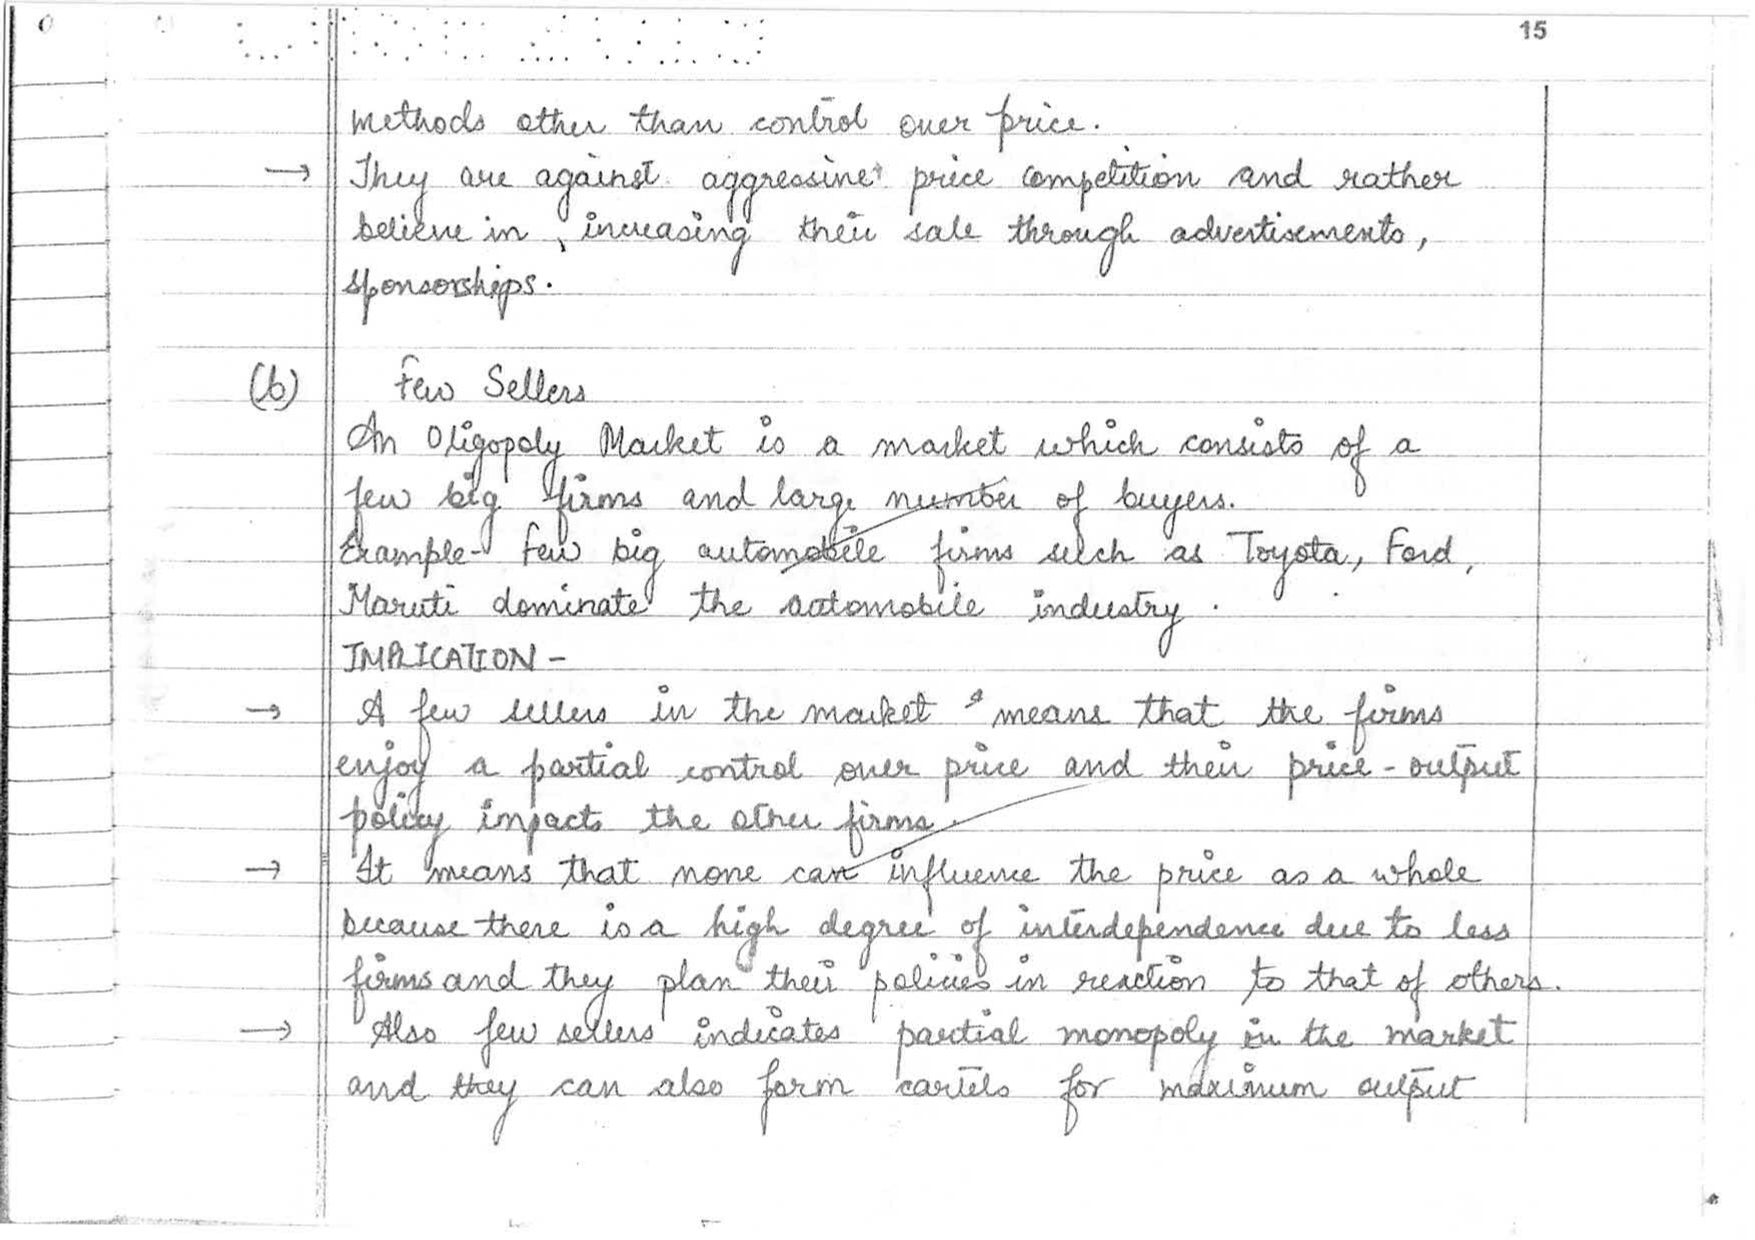 15
methods other than control over price.
→ They are against aggressive price competition and rather
believe in increasing their sale through advertisements,
sponsorships.
(b) Few Sellers
An Oligopoly Market is a market which consists of a
few big firms and large number of buyers.
Example- Few big automobile firms such as Toyota, Ford,
Maruti dominate the automobile industry.
IMPLICATION -
→ A few sellers in the market means that the firms
enjoy a partial control over price and their price - output
policy impacts the other firms.
→ It means that none can influence the price as a whole
because there is a high degree of interdependence due to less
firms and they plan their policies in reaction to that of others.
→ Also few sellers indicates partial monopoly in the market
and they can also form cartels for maximum output